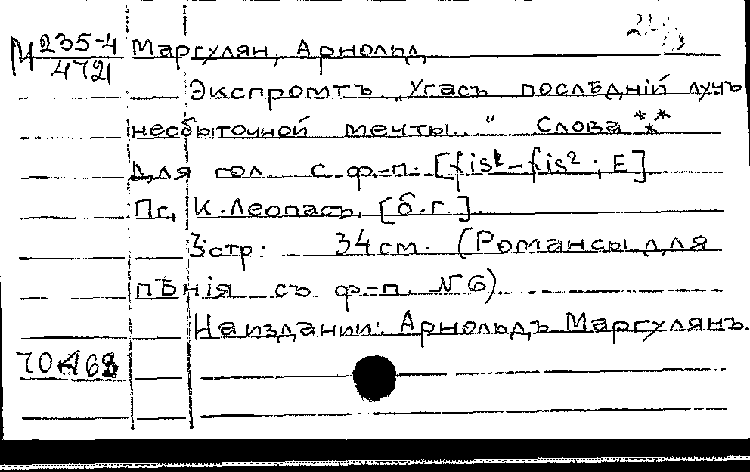 М 235-4 Маргулян, Арнольд
472
Экспромтъ „Угасъ послѣдній лучъ
несбыточной мечты.." Слова ***
Для гол. с ф.-п. [fis¹-fis²; E]
Пг, К. Леопасъ, [б.г.]
3стр. 34см. (Романсы для
пѣнія съ ф-п. №6)
На издании: Арнольдъ Маргулянъ.